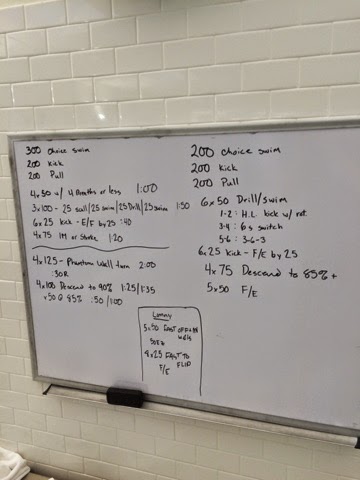 300 choice swim
200 Kick
200 Pull
4x50 w/ 4 Breaths or less 1:00
3x100 - 25 scull/25 swim/25 Drill/25 swim 1:50
6x25 kick - E/F by 25 :40
4x75 IM or Stroke 1:20
4x125 - Phantom Wall turn 2:00
:30R
4x100 Descend to 90% 1:25/1:35
x50 @ 85% :50/1:00
200 choice swim
200 Kick
200 Pull
6x50 Drill/swim
1-2: H.L. kick w/ rot.
3-4: 6s switch
5-6: 3-6-3
6x25 kick - F/E by 25
4x75 Descend to 85%+
5x50 F/E
5x50 FAST OFF
walls
4x25 FAST TO
FLIP
F/E